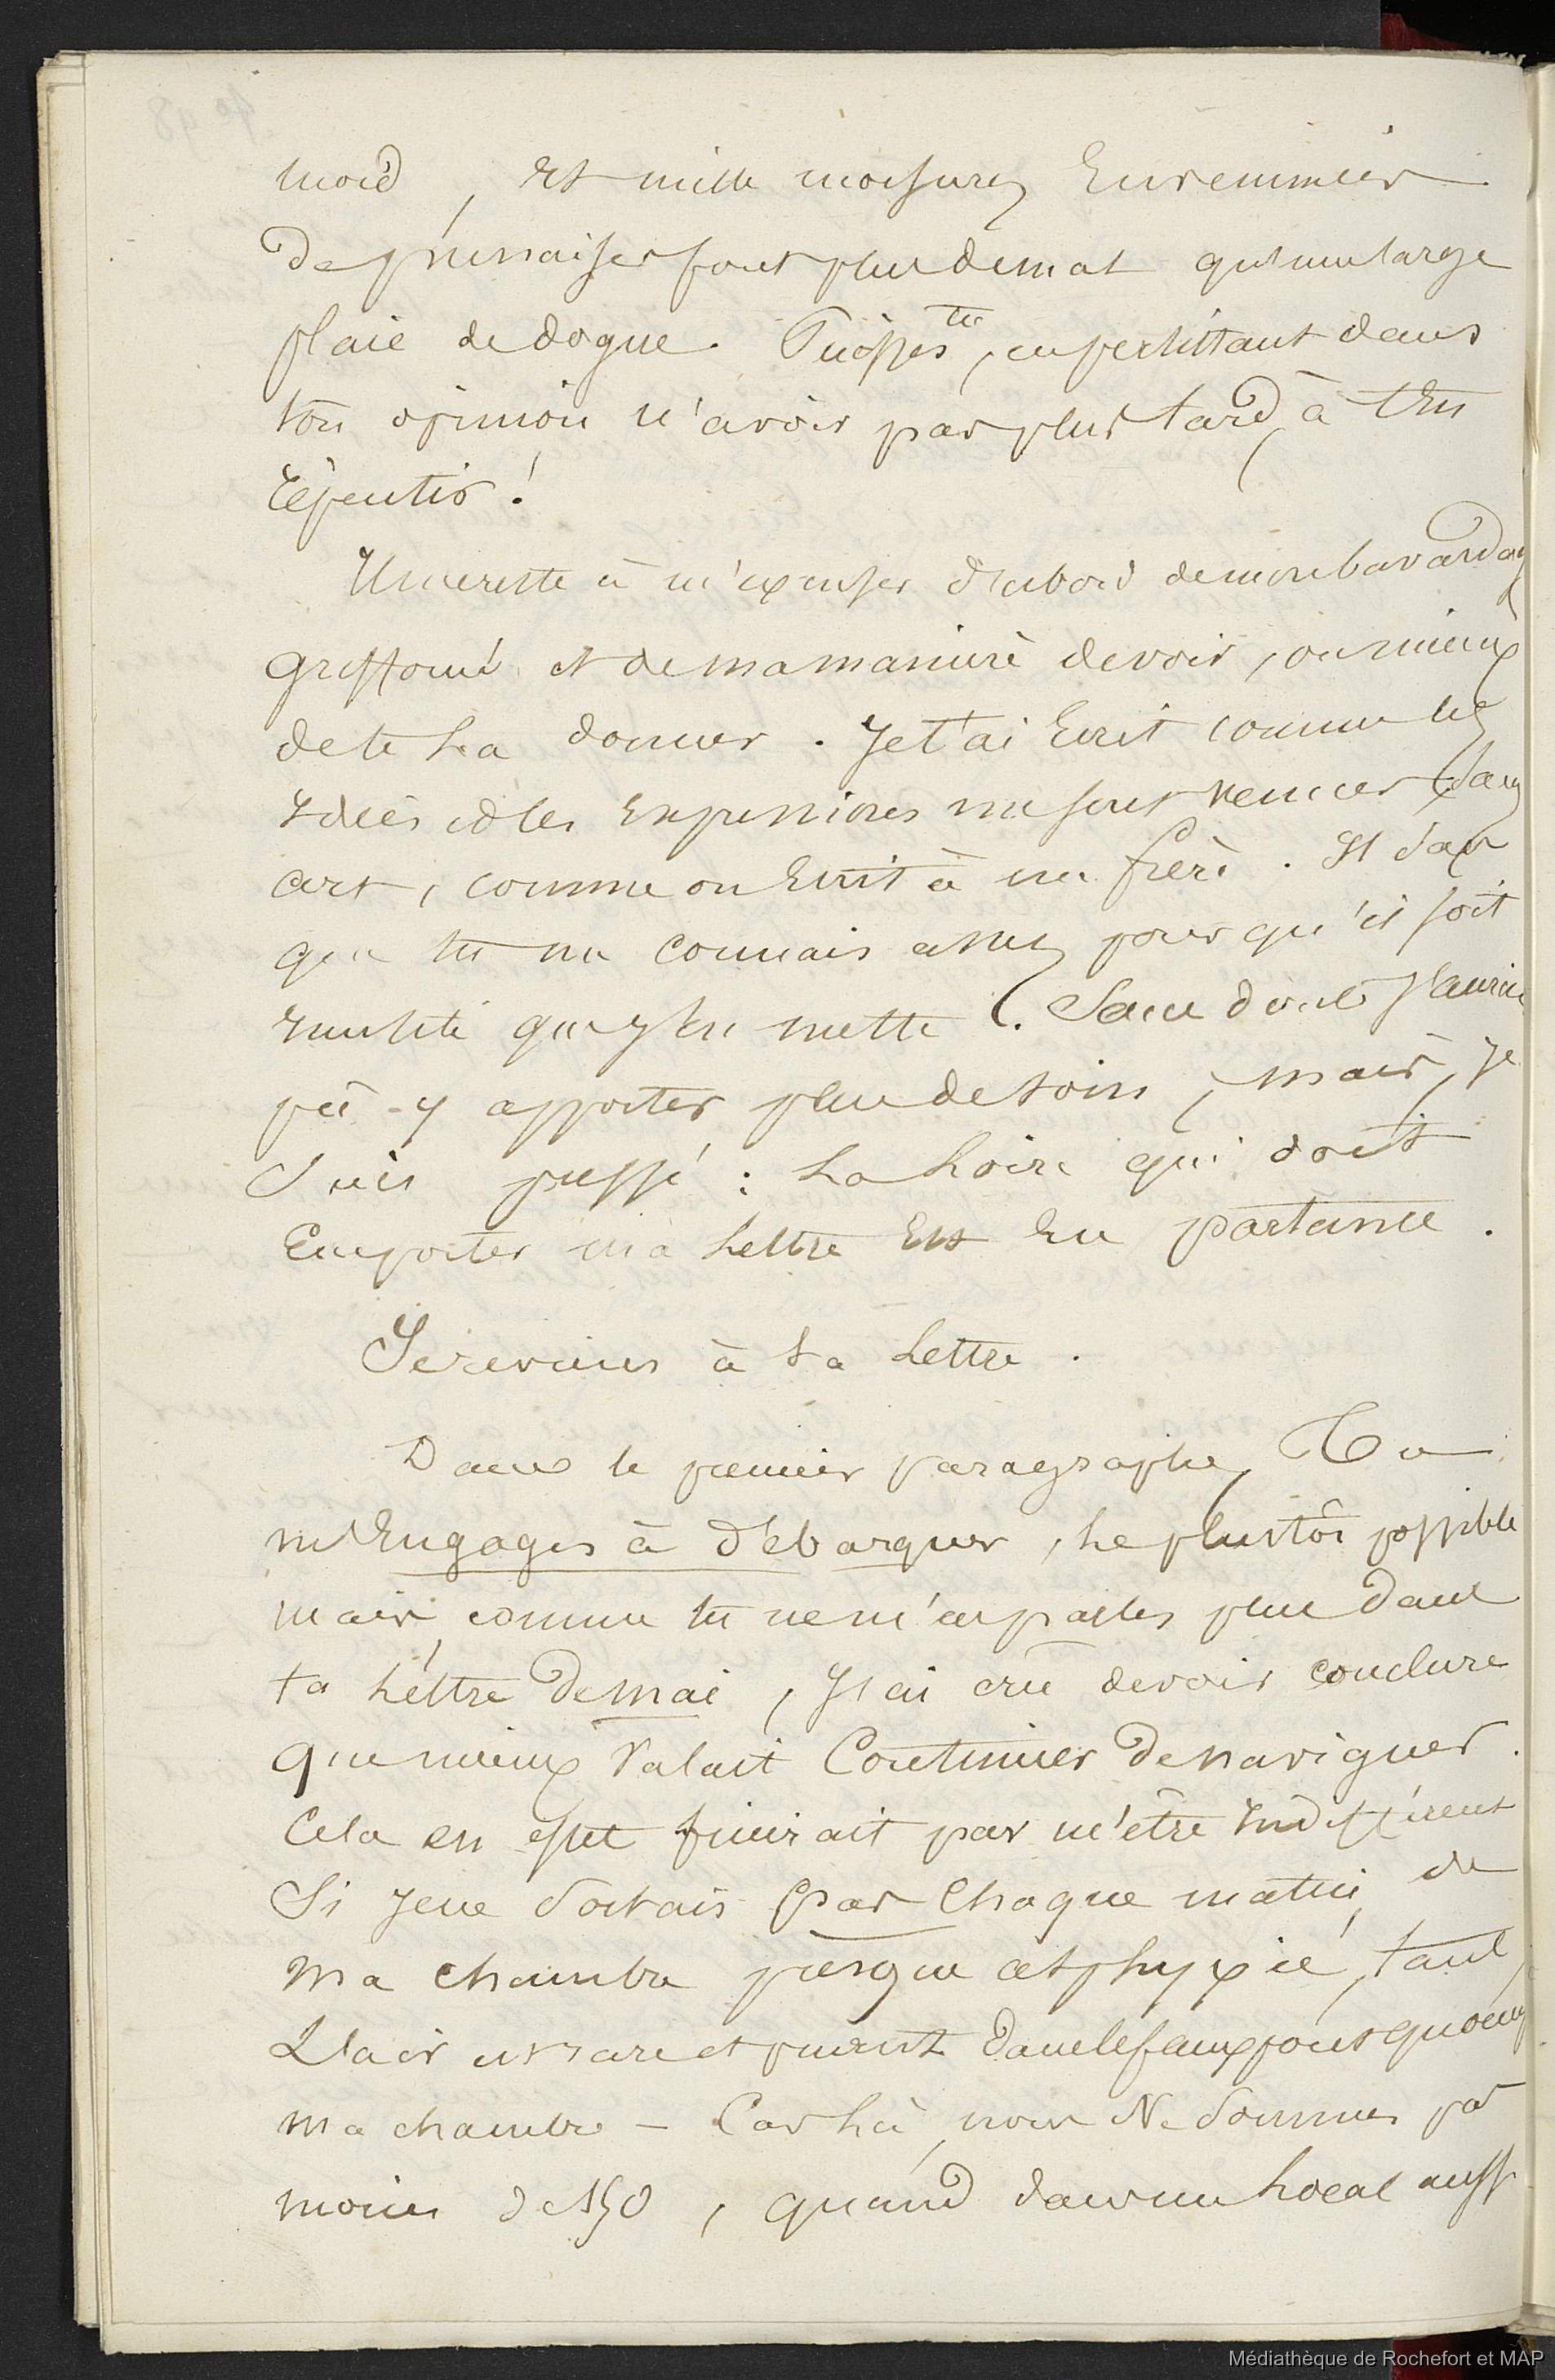 mord, et mille morsures Envenimées
de punaises font plus de mal qu'une large
plaie de dogue. Puisses tu, en persistant dans
ton opinion n'avoir pas plus tard, à t'en
repentir !
Il me reste à m'excuser d'abord de mon bavardag
griffonné et de ma manière de voir, ou mieux
de te La donner. Je t'ai Ecrit comme les
Idées et les Expressions me sont venues sans
art, comme on Ecrit à un frère. Et d'ailleurs
que tu me connais assez pour qu'il soit
Inutile que j'En mette. Sans doute J'aurais
pû-y apporter plus de soin, mais, je
Suis pressé : La Loire qui doit
Emporter ma Lettre Est En partance.
Je reviens à ta Lettre.
Dans le premier paragraphe, Tu
m'Engages à débarquer, Le plustôt possible
mais, comme tu ne m'en parles plus dans
ta Lettre de mai, J'ai crû devoir conclure
que mieux Valait Continuer de naviguer.
Cela en effet finirait par m'être Indifférent
Si je ne Sortais pas Chaque matin, de
ma chambre presque asphyxié, tant
L'air est rare et puant dans le faux pont qu'occup
ma chambre — Car Là, nous Ne Sommes pas
moins de 150, quand dans un Local aussi
Médiathèque de Rochefort et MAP